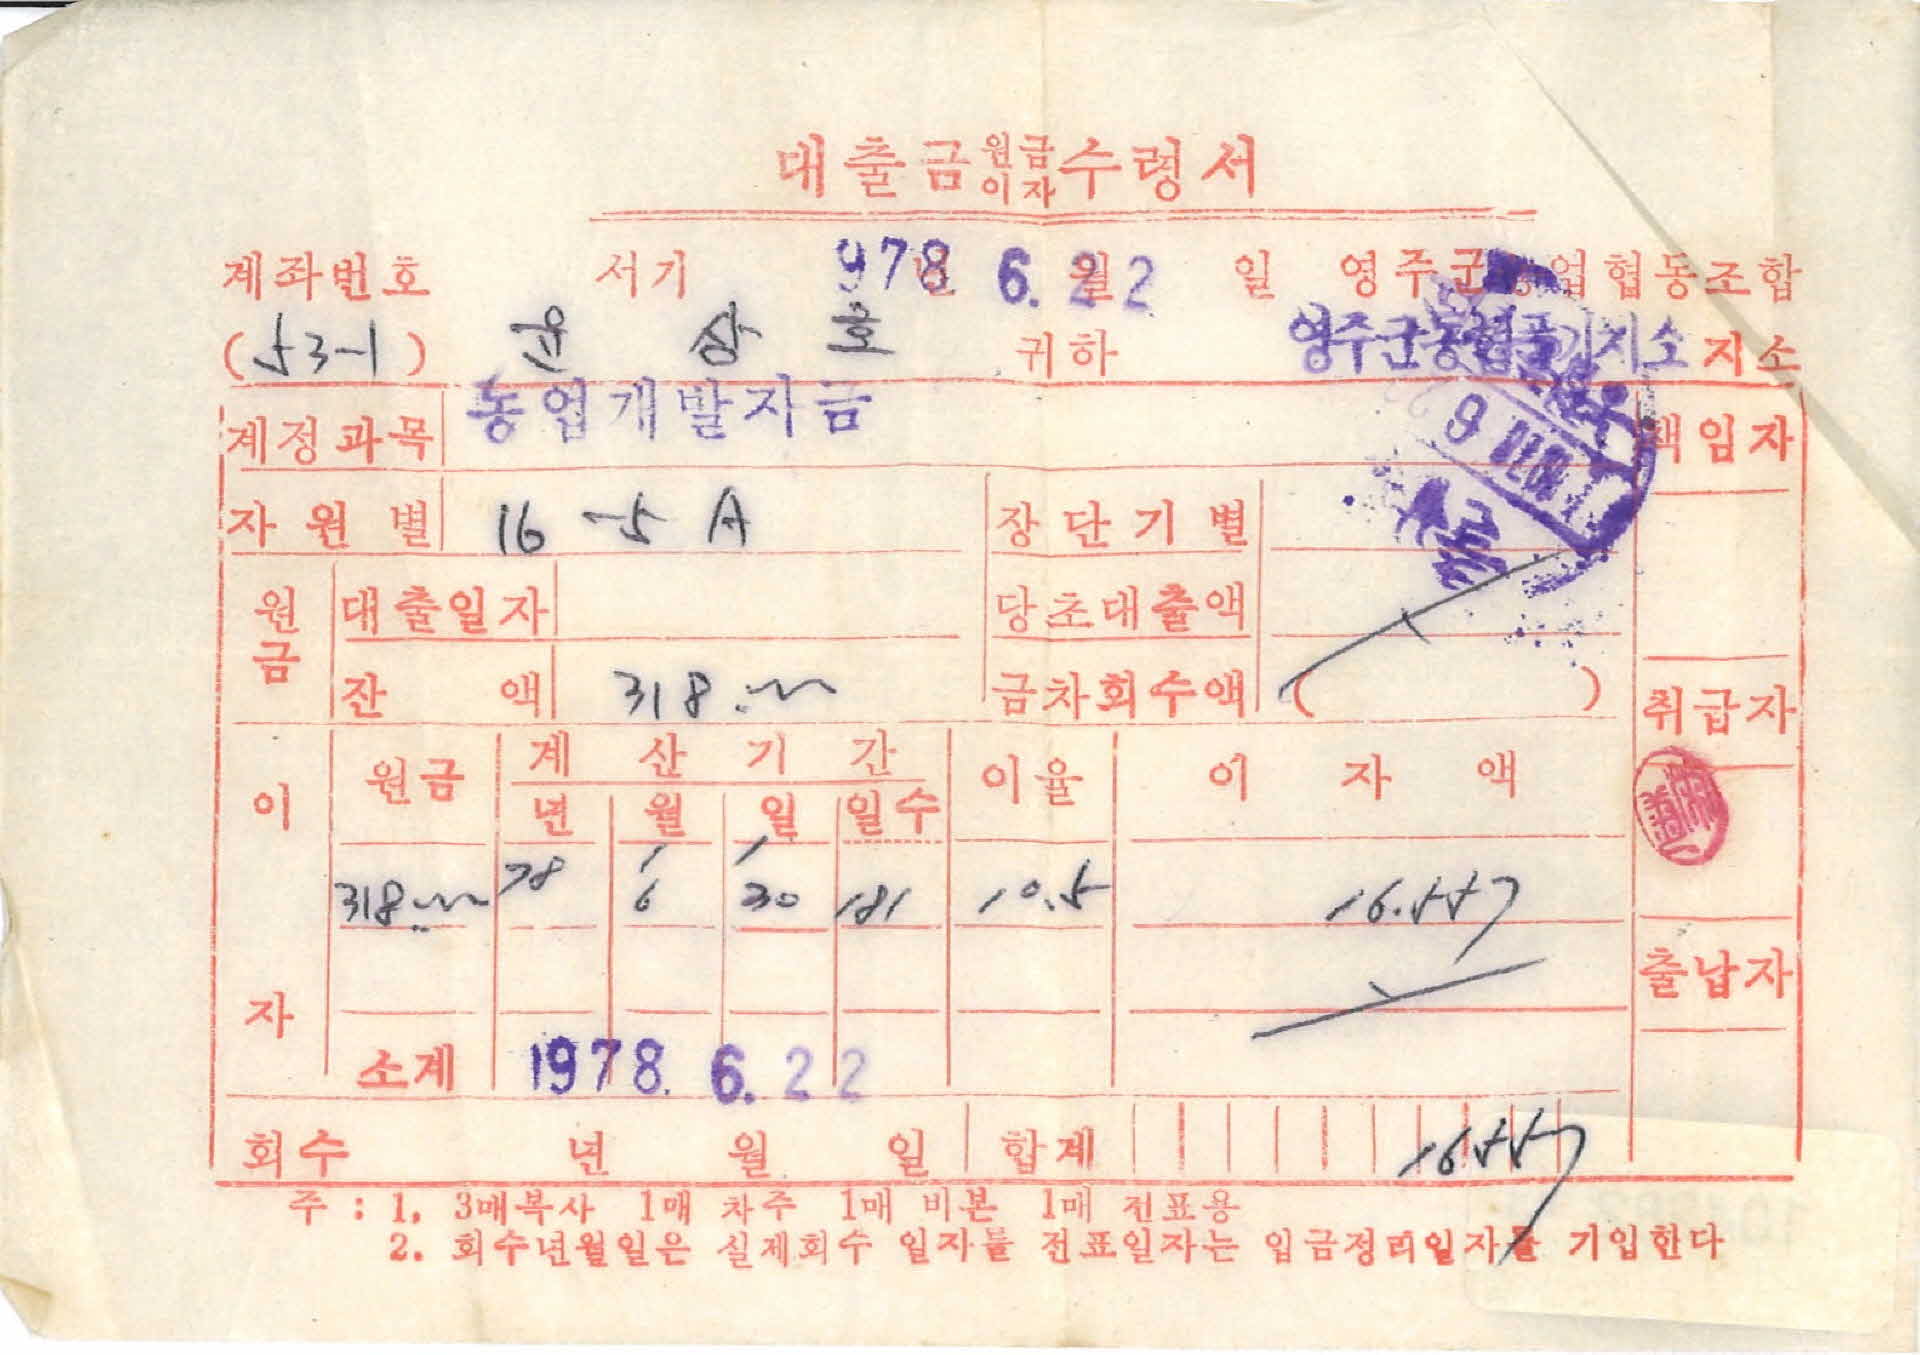 대출금 원금 이자 수령서
계좌번호 서기 1978년 6.월22 일 영주군농업협동조합
(53-1) 윤 상 호 귀하 영주군농협풍기지소 지소
계정과목 농업개발자금 책임자
자원별 16-5A 장단기별
원금 대출일자 당초대출액
잔액 318. 금차회수액 ( ) 취급자
이자 원금 계산기간 이율 이자액
년 월 일 일수
1 1
318 78 6 30 181 10.5 16.557
출납자
소계 1978. 6. 22
회수 년 월 일 합계 16557
주 : 1. 3매복사 1매 차주 1매 비본 1매 전표용
2. 회수년월일은 실제회수 일자를 전표일자는 입금정리일자를 기입한다